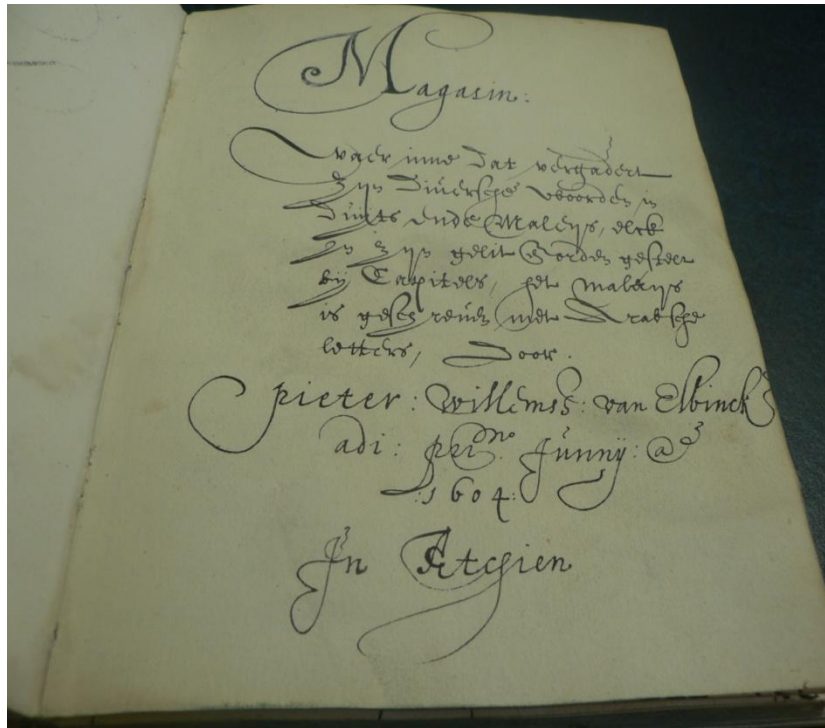 Magasin:
waer inne dat vergadert
zijn diversche woorden in
duijts ende Maleijs, elck
in zijn gelit & orden gestelt
bij Capitels, het maleijs
is geschreven met Arabsche
letters, door.
pieter: willemsz: van Elbinck
adi: primo Junny: a°
:1604:
In Atchien